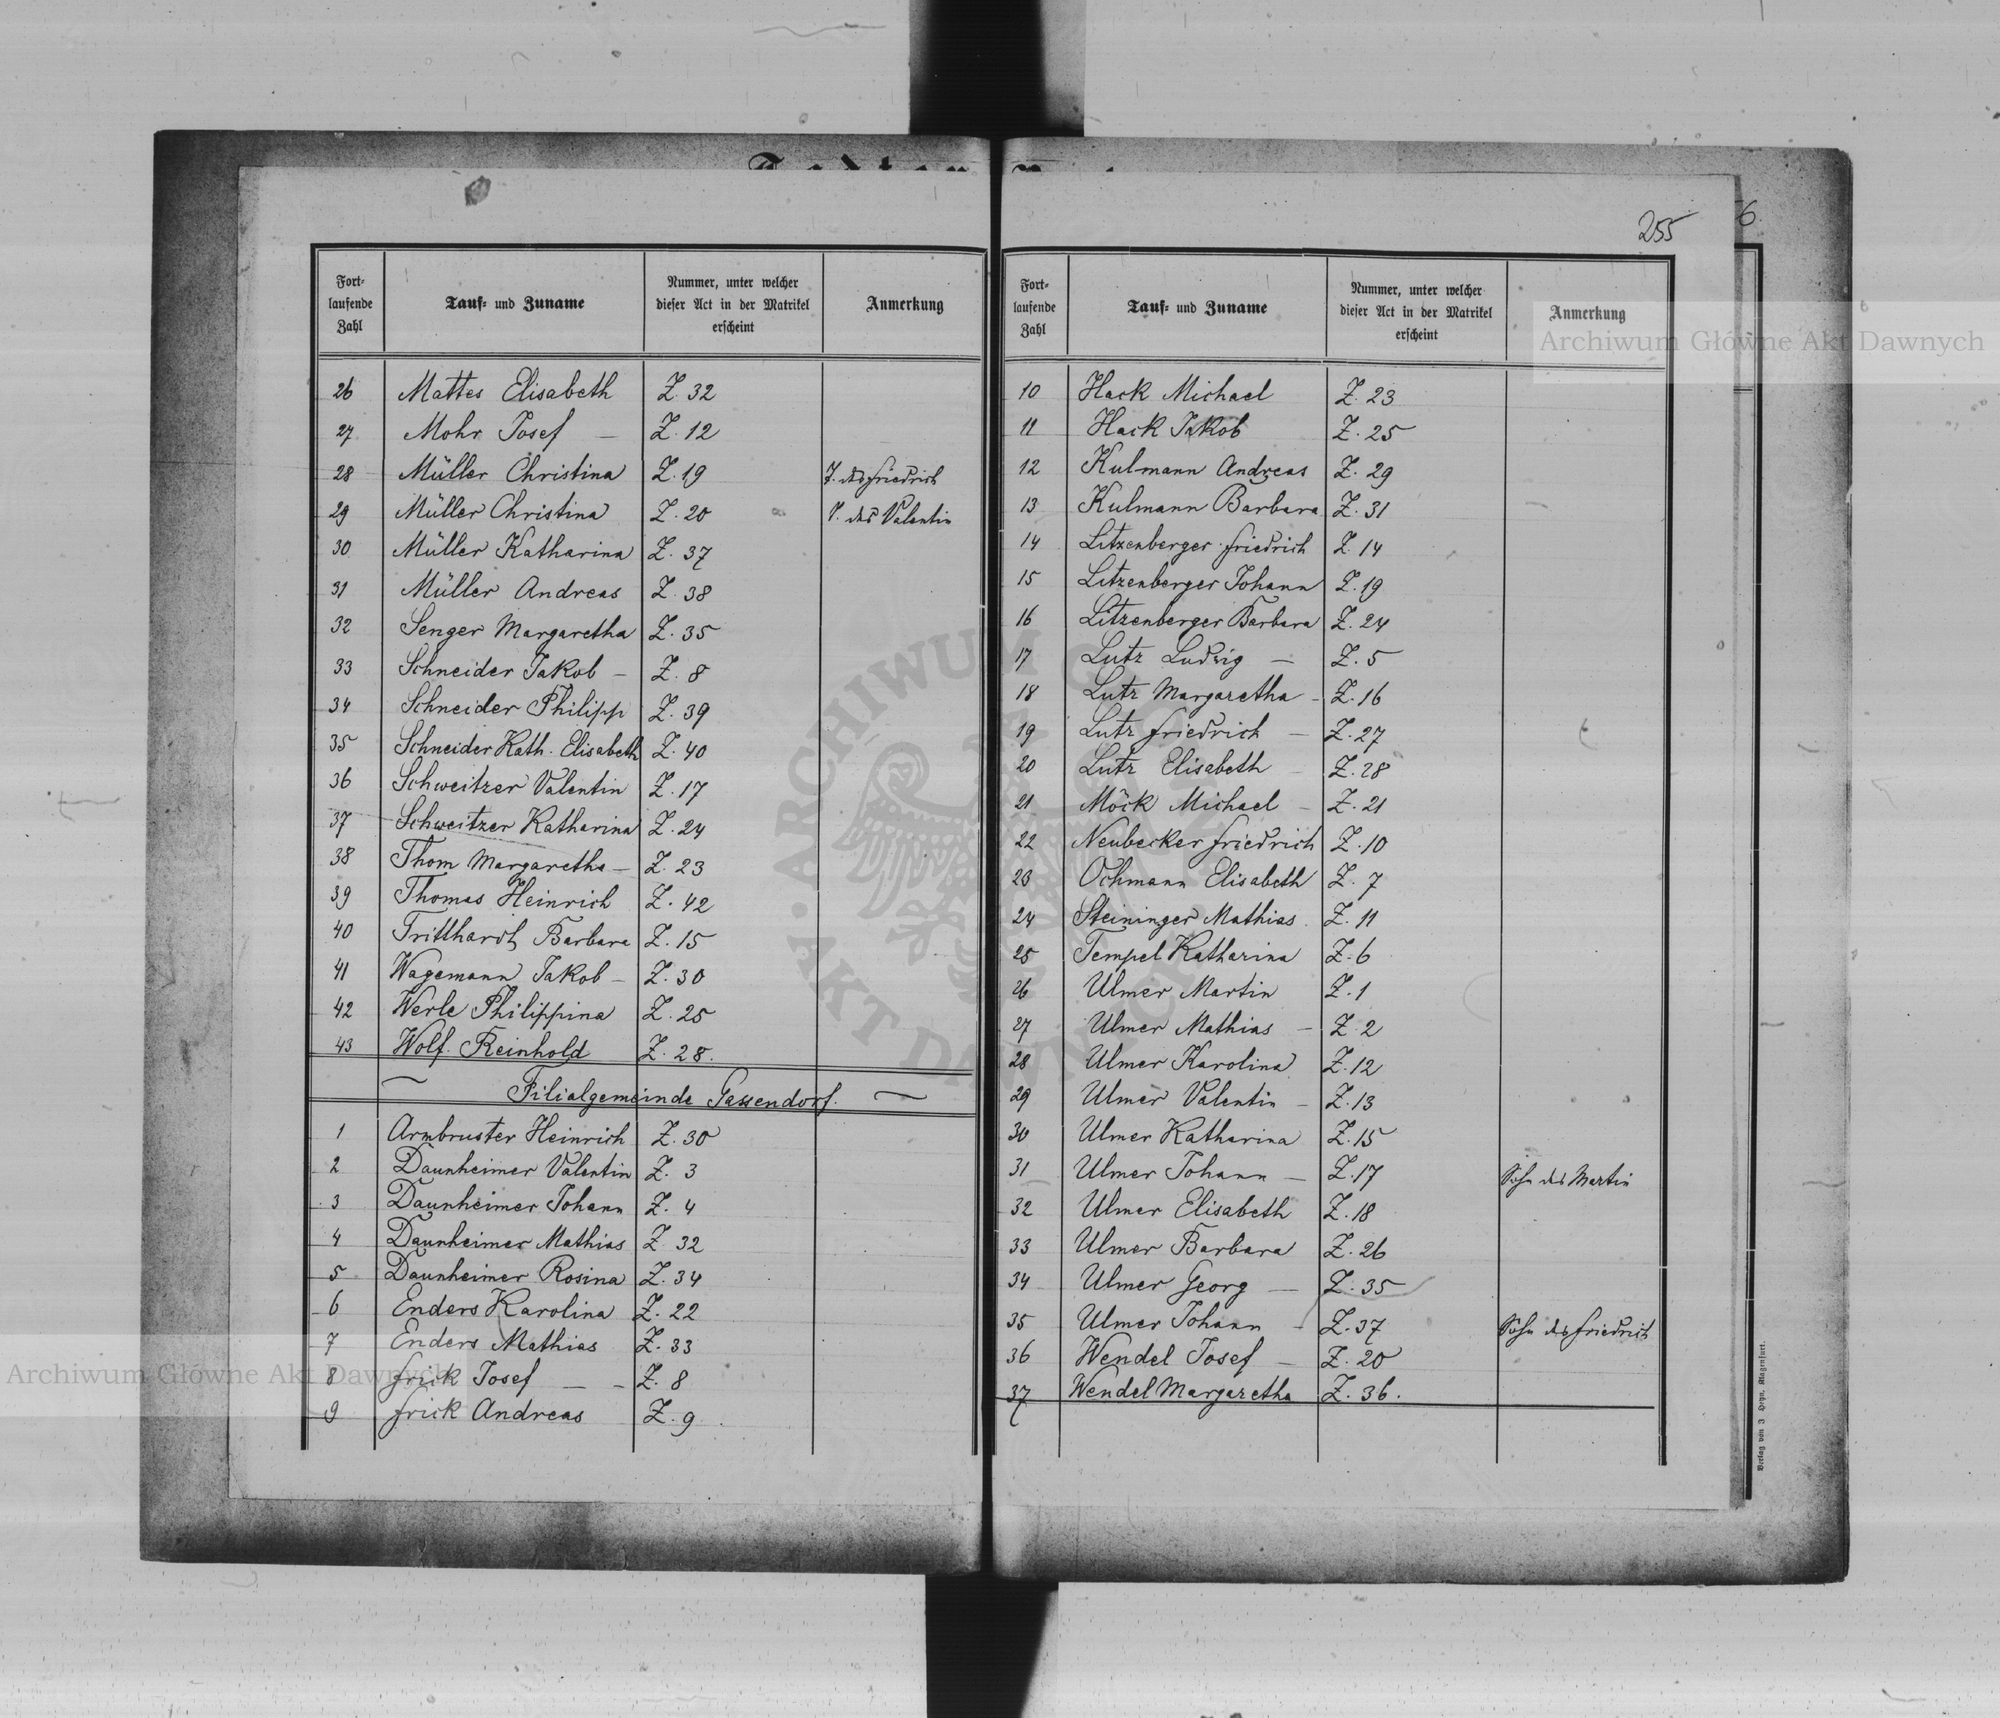 255
6
Fort-
laufende
Zahl
Tauf- und Zuname
Nummer, unter welcher
dieser Act in der Matrikel
erscheint
Anmerkung
26 Mattes Elisabeth Z. 32
27 Mohr Josef — Z. 12
28 Müller Christina Z. 19 T. des Friedrich
29 Müller Christina Z. 20 T. des Valentin
30 Müller Katharina Z. 37
31 Müller Andreas Z. 38
32 Senger Margaretha Z. 35
33 Schneider Jakob — Z. 8
34 Schneider Philipp Z. 39
35 Schneider Kath. Elisabeth Z. 40
36 Schweitzer Valentin Z. 17
37 Schweitzer Katharina Z. 24
38 Thom Margaretha — Z. 23
39 Thomas Heinrich Z. 42
40 Tritthardt Barbara Z. 15
41 Wagemann Jakob — Z. 30
42 Werle Philippina Z. 25
43 Wolf Reinhold Z. 28.
Filialgemeinde Gassendorf.
1 Armbruster Heinrich Z. 30
2 Daunheimer Valentin Z. 3
3 Daunheimer Johann Z. 4
4 Daunheimer Mathias Z. 32
5 Daunheimer Rosina Z. 34
6 Enders Karolina Z. 22
7 Enders Mathias Z. 33
8 Frick Josef — Z. 8
9 Frick Andreas Z. 9.
Fort-
laufende
Zahl
Tauf- und Zuname
Nummer, unter welcher
dieser Act in der Matrikel
erscheint
Anmerkung
10 Hack Michael Z. 23
11 Hack Jakob Z. 25
12 Kulmann Andreas Z. 29
13 Kulmann Barbara Z. 31
14 Litzenberger Friedrich Z. 14
15 Litzenberger Johann Z. 19
16 Litzenberger Barbara Z. 24
17 Lutz Ludwig — Z. 5
18 Lutz Margaretha — Z. 16
19 Lutz Friedrich — Z. 27
20 Lutz Elisabeth — Z. 28
21 Möck Michael — Z. 21
22 Neubecker Friedrich Z. 10
23 Ochmann Elisabeth Z. 7
24 Steininger Mathias Z. 11
25 Tempel Katharina Z. 6
26 Ulmer Martin Z. 1
27 Ulmer Mathias — Z. 2
28 Ulmer Karolina Z. 12
29 Ulmer Valentin — Z. 13
30 Ulmer Katharina Z. 15
31 Ulmer Johann — Z. 17 Sohn des Martin
32 Ulmer Elisabeth Z. 18
33 Ulmer Barbara Z. 26
34 Ulmer Georg — Z. 35
35 Ulmer Johann — Z. 37 Sohn des Friedrich
36 Wendel Josef — Z. 20
37 Wendel Margaretha Z. 36.
Verlag von J. Heyn, Klagenfurt.
Archiwum Główne Akt Dawnych
Archiwum Główne Akt Dawnych